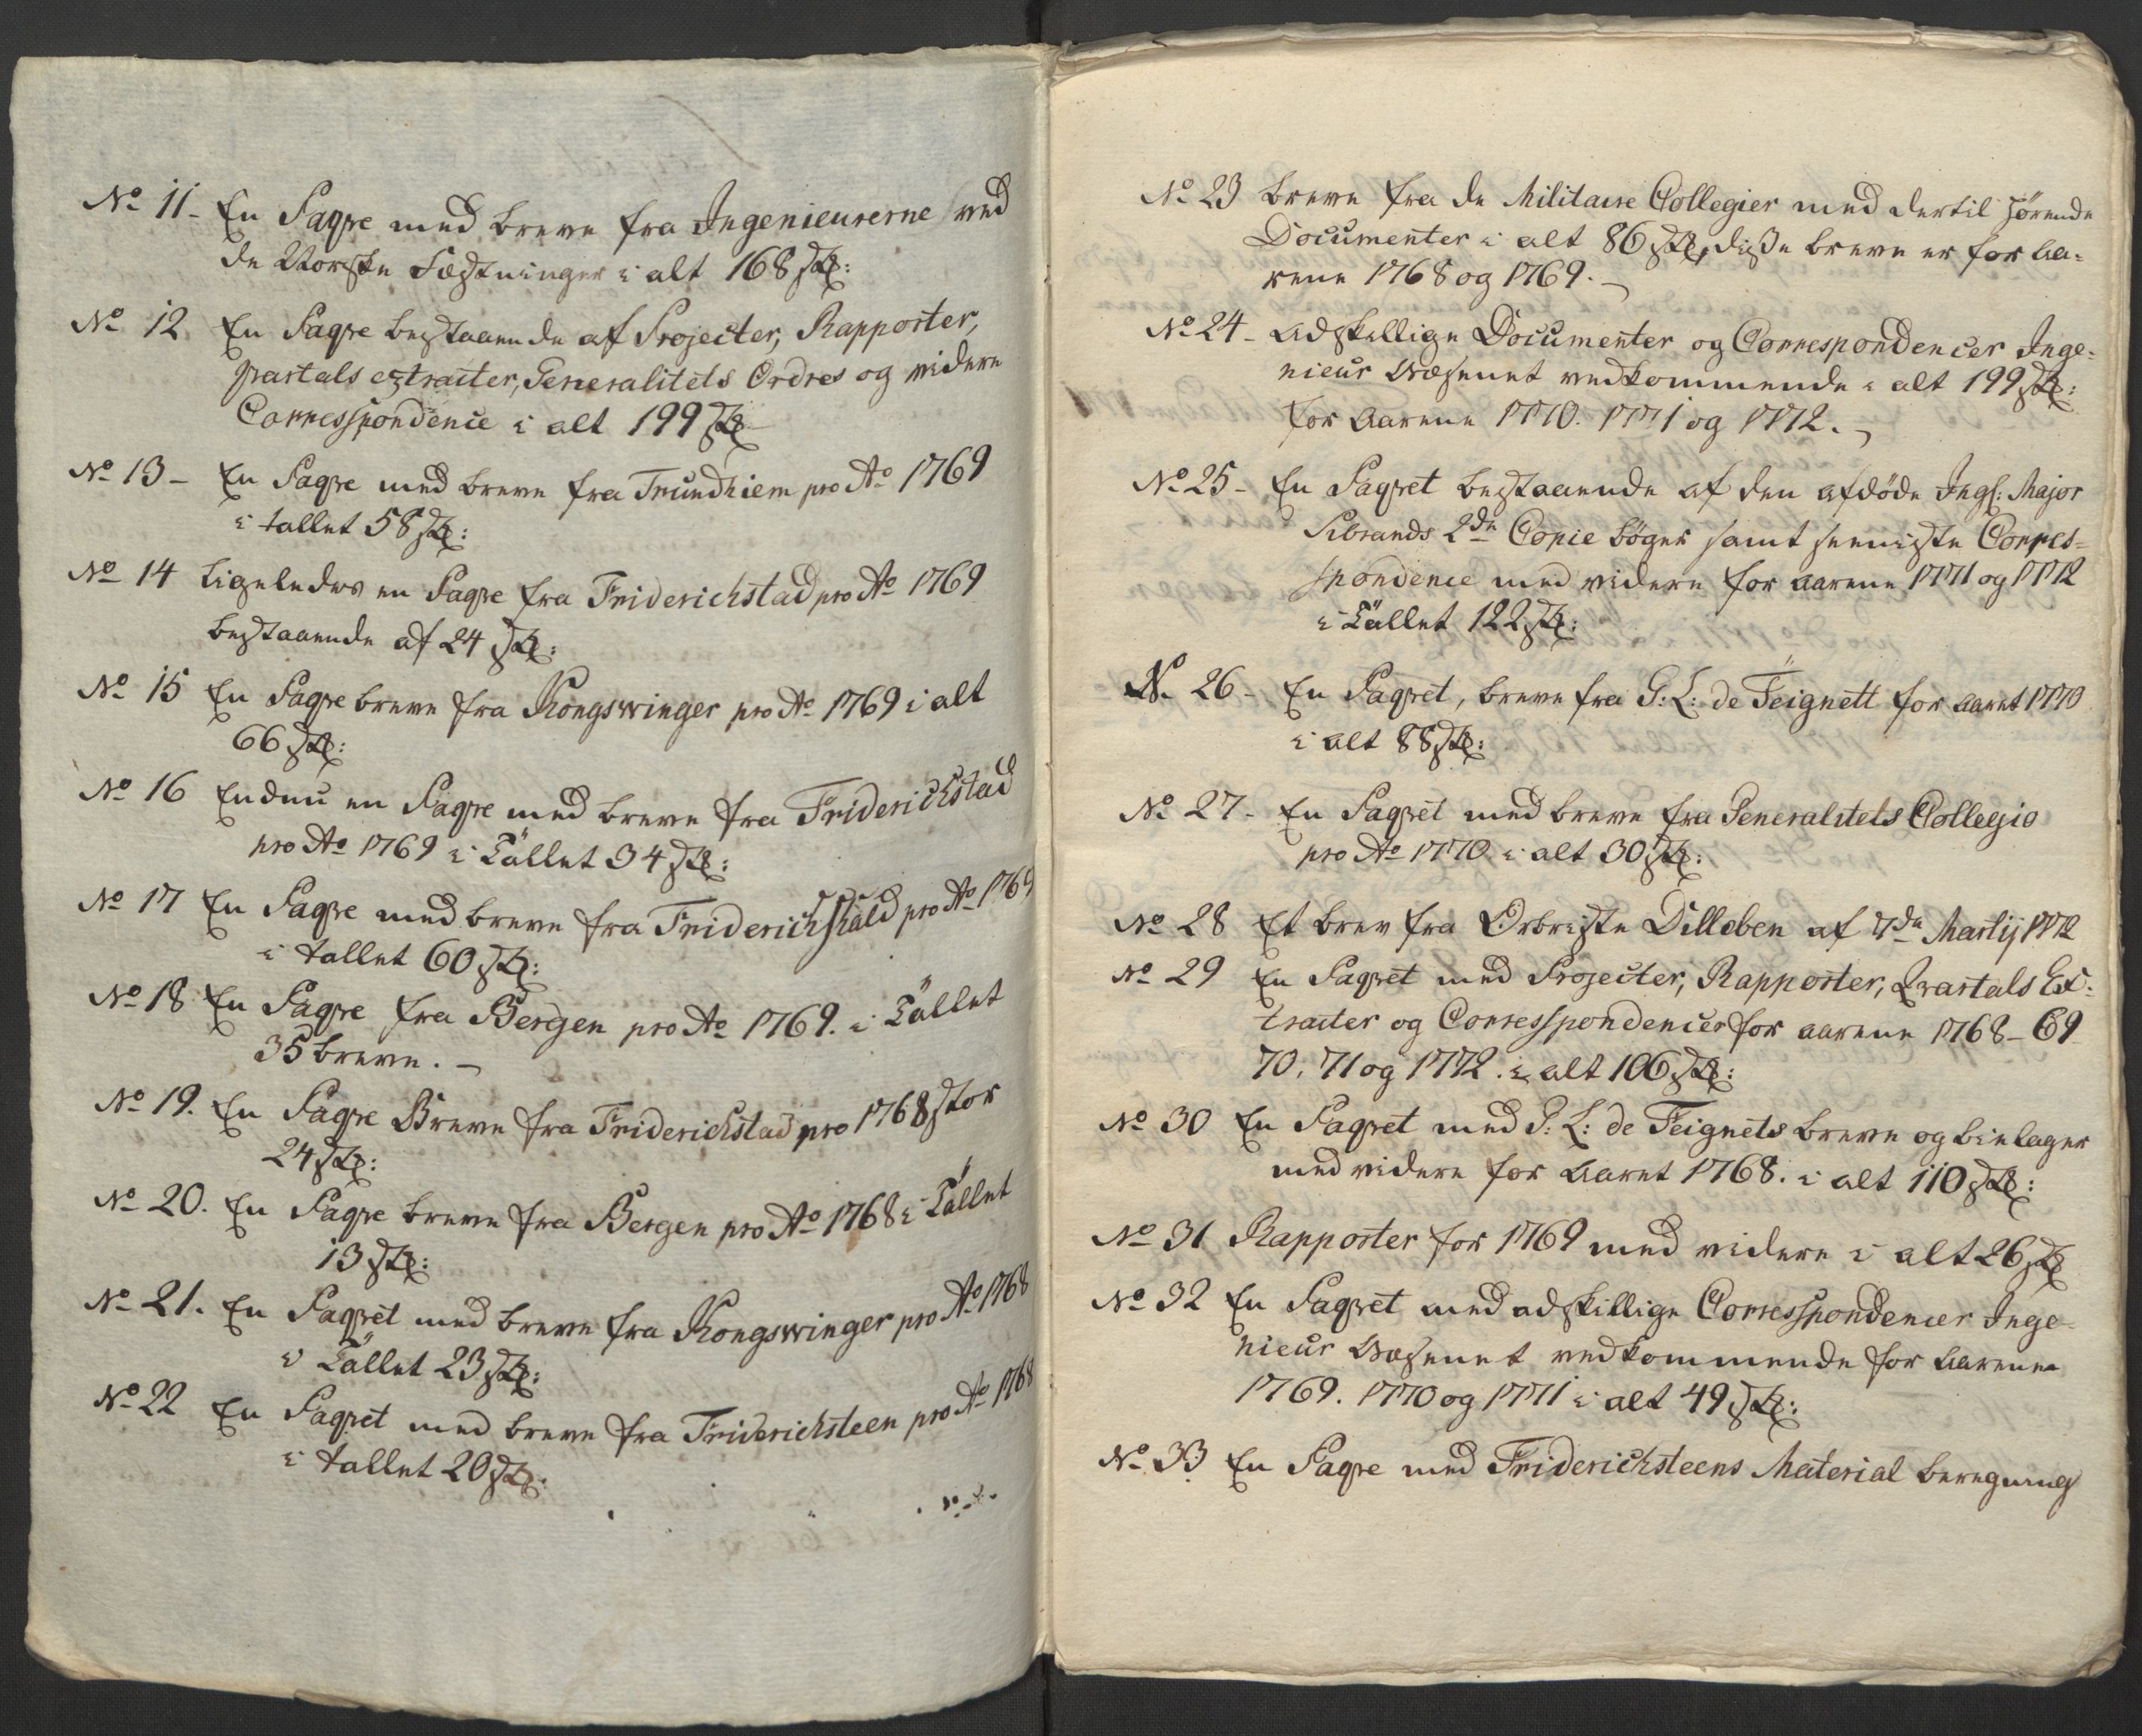 No 11- En Paqve med breve fra Ingenieurerne ved
de Norske Fæstninger i alt 168 stk:
No 12 En Paqve bestaaende af Projecter, Rapporter,
qvartals extracter, Generalitets Ordres og videre
Correspondence i alt 199 stk
No 13- En Paqve med breve fra Trundhiem pro Ao 1769
i tallet 58 stk:
No 14 Ligeledes en Paqve fra Friderichstad pro Ao 1769
bestaaende af 24 stk:
No 15 En Paqve breve fra Kongswinger pro Ao 1769 i alt
66 stk:
No 16 Endnu en Paqve med breve fra Friderichstad
pro Ao 1769 i Tallet 34 stk:
No 17 En Paqve med breve fra Friderichshald pro Ao 1769
i tallet 60 stk:
No 18 En Paqve fra Bergen pro Ao 1769. i Tallet
35 breve. -
No 19. En Paqve Breve fra Friderichstad pro 1768 stor
24 stk:
No 20. En Paqve breve fra Bergen pro Ao 1768 i Tallet
13 stk:
No 21. En Paqvet med breve fra Kongswinger pro Ao 1768
i Tallet 23 stk:
No 22 En Paqvet med breve fra Friderichsteen pro Ao 1768
i tallet 20 stk:
No 23 breve fra de Militaire Collegier med dertil hørende
Documenter i alt 86 stk, diße breve er for Aa=
rene 1768 og 1769. -
No 24- Adskellige Documenter og Correspondencer Inge=
nieur Væsenet vedkommende i alt 199 stk:
for Aarene 1770. 1771 og 1772. -
No 25- En Paqvet bestaaende af den afdøde Ing: Major
Sibrands 2de Copie bøger samt seeniste Corres=
pondence med videre for aarene 1771 og 1772
i Tallet 122 stk:
No 26- En Paqvet, breve fra G: L: de Teignett for aaret 1770
i alt 88 stk:
No 27- En Paqvet med breve fra Generalitets Collegio
pro Ao 1770 i alt 30 stk:
No 28 Et brev fra Obriste Dilleben af 7de Martij 1772
No 29 En Paqvet med Projecter, Rapporter, Qvartals Ex=
tracter og Correspondencer for aarene 1768-69
70, 71 og 1772. i alt 106 stk:
No 30 En Paqvet med G: L: de Teignets breve og bielager
med videre for Aaret 1768. i alt 110 stk:
No 31 Rapporter for 1769 med videre i alt 26 stk
No 32 En Paqvet med adskillige Correspondencer Inge=
nieur Væsenet vedkommende for Aarene
1769. 1770 og 1771 i alt 49 stk:
No 33 En Paqve med Friderichsteens Material beregning